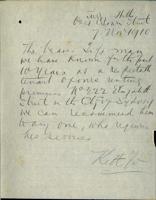 Hills
Street
7 Nov 1910
The bearer is a man
we have known for the past
10 years as a respectable
tenant of ours renting
premises No 222 Elizabeth
Street in the City of Sydney
we can recommend him
to any one, who requires
his services